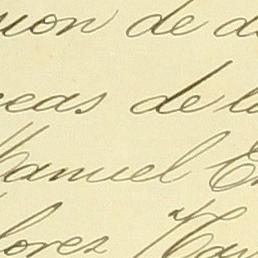 sion de d
eas de l
Manuel E
lores Ha